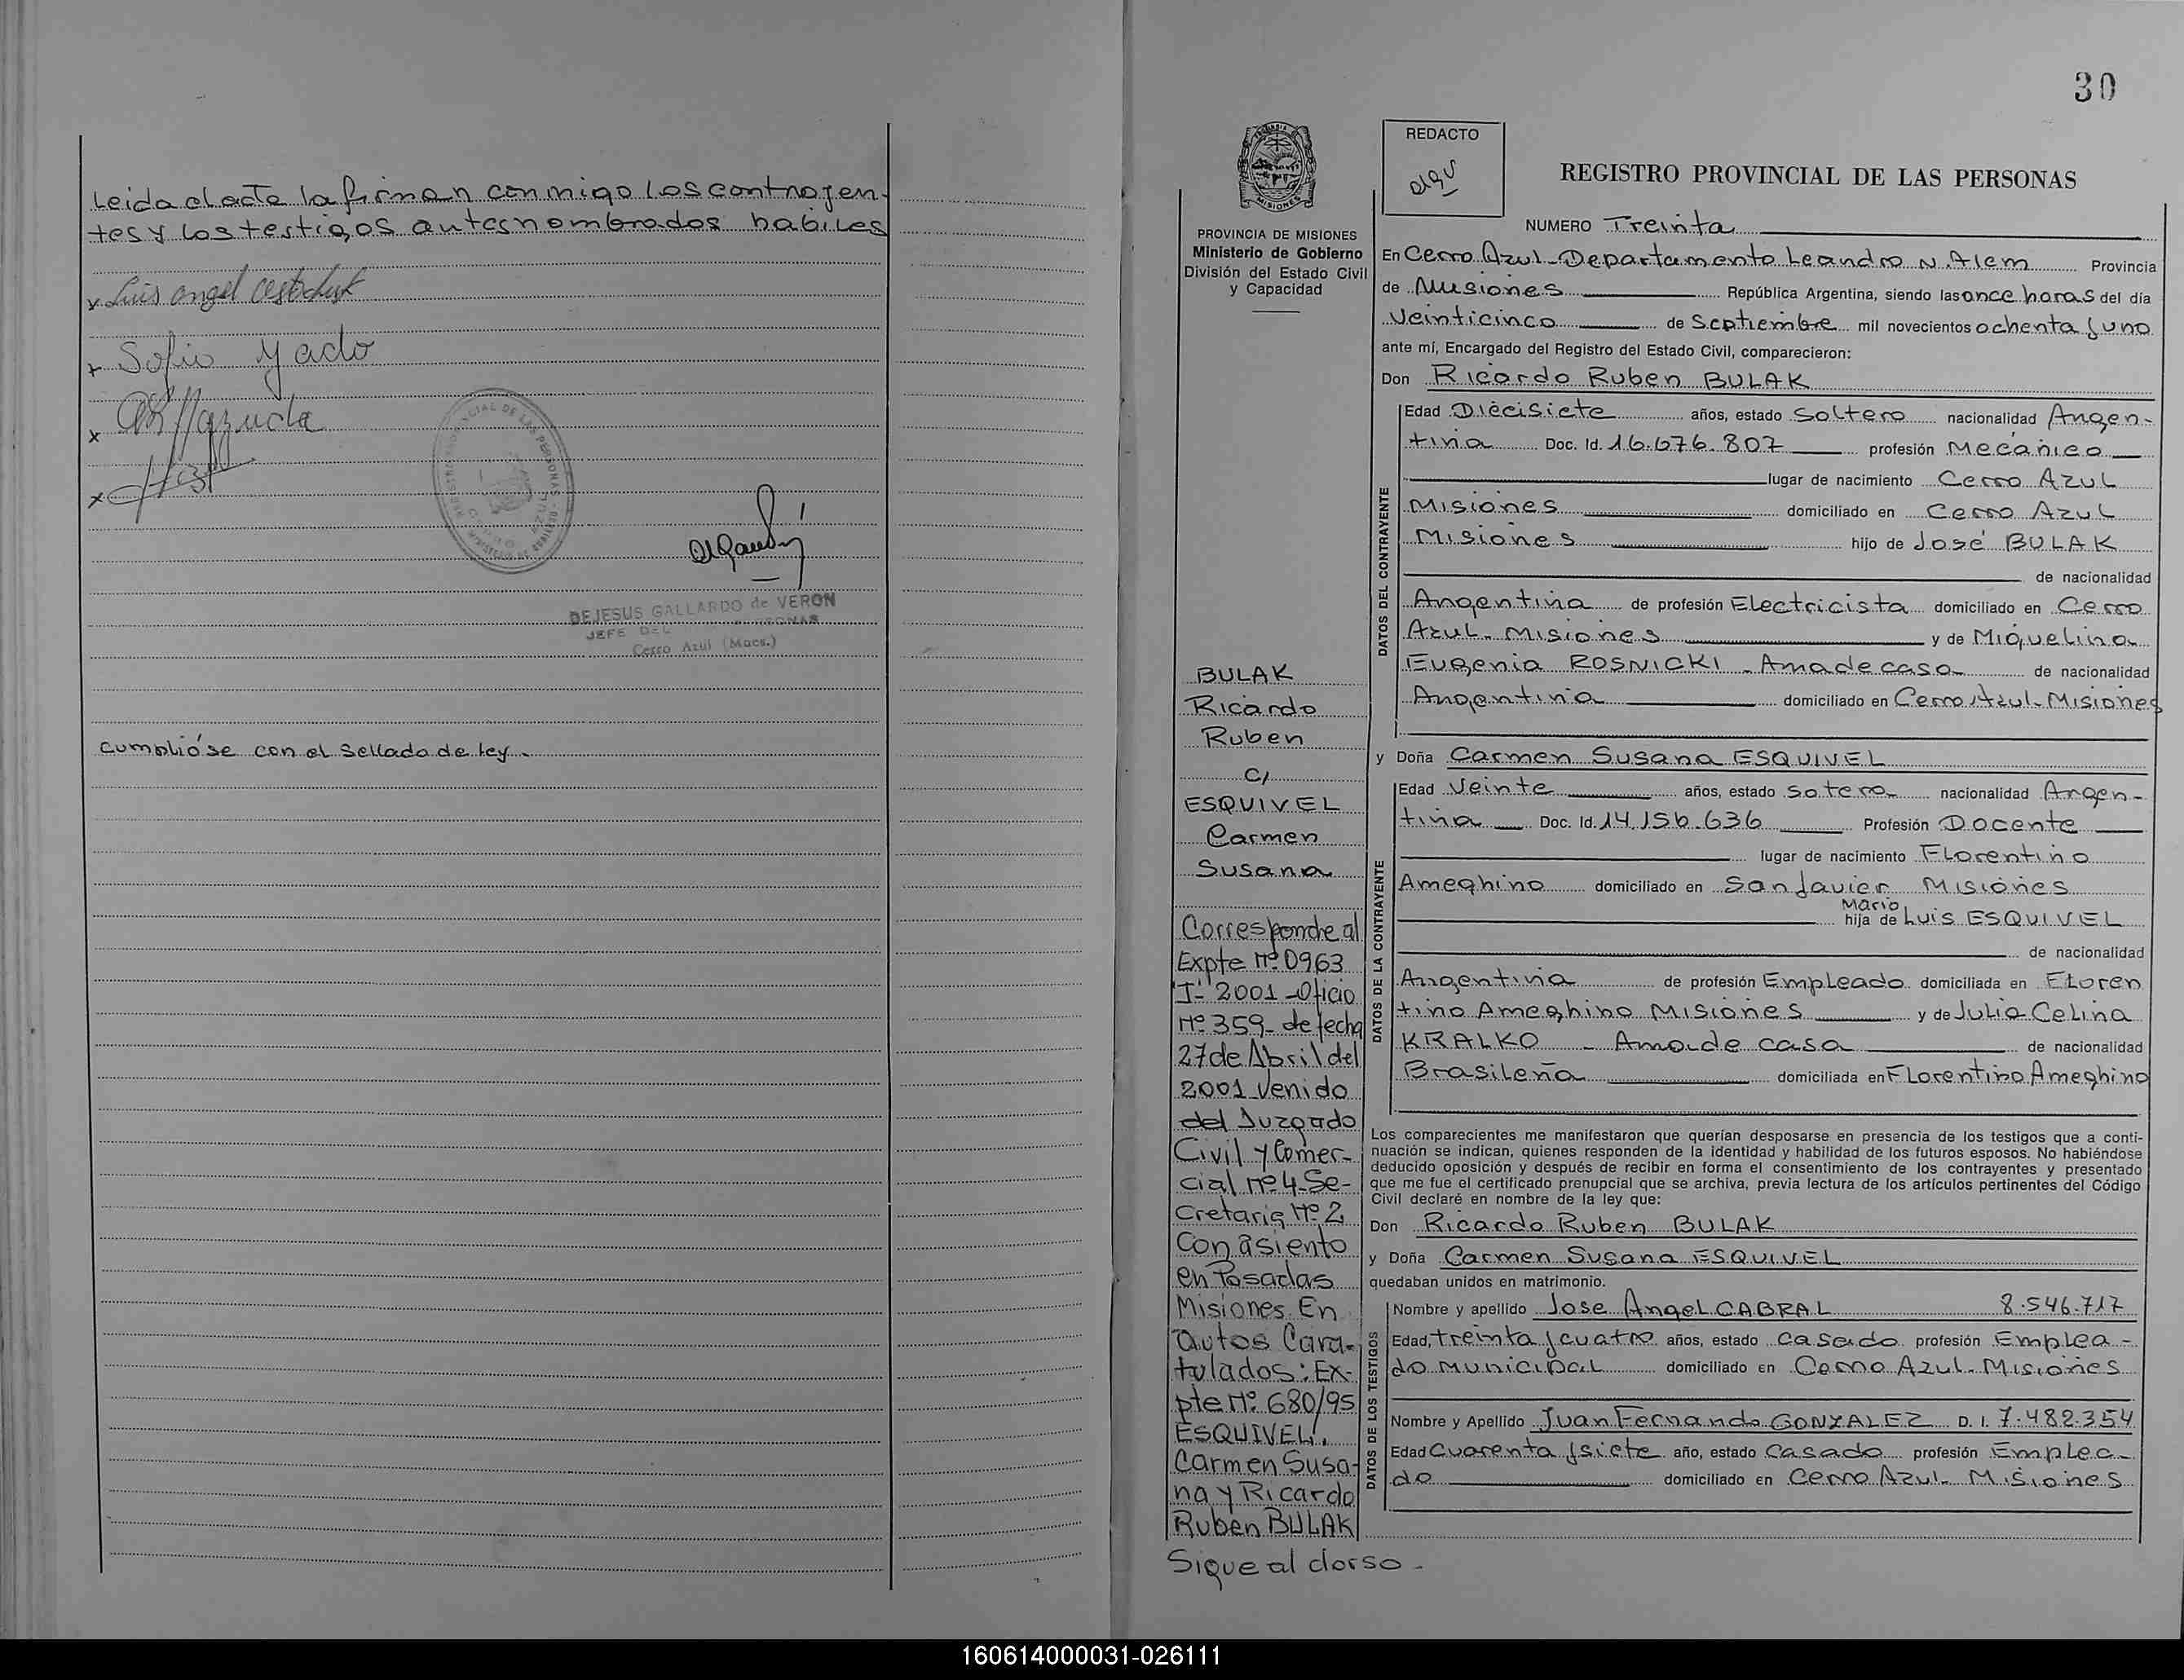 Leida el acta la firman conmigo los contrayen-
tes y los testigos antes nombrados habiles
x Luis angel
x Sofia Yado
x
x
DEJESUS GALLARDO de VERON
JEFE DEL
Cerro Azul (Mnes.)
Cumplióse con el sellado de ley.
30
PROVINCIA DE MISIONES
Ministerio de Gobierno
División del Estado Civil
y Capacidad
BULAK
Ricardo
Ruben
C/
ESQUIVEL
Carmen
Susana
Corresponde al
Expte Nº 0963
"J" 2001 - Oficio
Nº 359 - de fecha
27 de Abril del
2001 Venido
del Juzgado
Civil y Comer-
cial Nº 4 - Se-
cretaria Nº 2
Con asiento
en Posadas
Misiones En
autos Cara-
tulados: Ex-
pte Nº 680/95
ESQUIVEL
Carmen Susa-
na y Ricardo
Ruben BULAK
Sigue al dorso -
REDACTO
REGISTRO PROVINCIAL DE LAS PERSONAS
NUMERO Treinta
En Cerro Azul - Departamento Leandro N. Alem Provincia
de Misiones República Argentina, siendo las once horas del día
Veinticinco de Septiembre mil novecientos ochenta y uno
ante mí, Encargado del Registro del Estado Civil, comparecieron:
Don Ricardo Ruben BULAK
DATOS DEL CONTRAYENTE
Edad Diecisiete años, estado Soltero nacionalidad Argen-
tina Doc. Id. 16.676.807 profesión Mecánico
lugar de nacimiento Cerro Azul
Misiones domiciliado en Cerro Azul
Misiones hijo de José BULAK
de nacionalidad
Argentina de profesión Electricista domiciliado en Cerro
Azul - Misiones y de Miquelina
Eugenia ROSNICKI - Ama de casa de nacionalidad
Argentina domiciliado en Cerro Azul - Misiones
y Doña Carmen Susana ESQUIVEL
DATOS DE LA CONTRAYENTE
Edad Veinte años, estado Sotera nacionalidad Argen-
tina Doc. Id. 14.156.636 Profesión Docente
lugar de nacimiento Florentino
Ameghino domiciliado en San Javier Misiones
Mario
hija de Luis ESQUIVEL
de nacionalidad
Argentina de profesión Empleado domiciliada en Floren
tino Ameghino Misiones y de Julia Celina
KRALKO - Ama de casa de nacionalidad
Brasileña domiciliada en Florentino Ameghino
Los comparecientes me manifestaron que querían desposarse en presencia de los testigos que a conti-
nuación se indican, quienes responden de la identidad y habilidad de los futuros esposos. No habiéndose
deducido oposición y después de recibir en forma el consentimiento de los contrayentes y presentado
que me fue el certificado prenupcial que se archiva, previa lectura de los artículos pertinentes del Código
Civil declaré en nombre de la ley que:
Don Ricardo Ruben BULAK
y Doña Carmen Susana ESQUIVEL
quedaban unidos en matrimonio.
DATOS DE LOS TESTIGOS
Nombre y apellido Jose Angel CABRAL 8.546.717
Edad, treinta y cuatro años, estado Casado profesión Emplea-
do Municipal domiciliado en Cerro Azul - Misiones
Nombre y Apellido Juan Fernando GONZALEZ D. I. 7.482.354
Edad Cuarenta y siete año, estado Casado profesión Emplea-
do domiciliado en Cerro Azul - Misiones
160614000031-026111